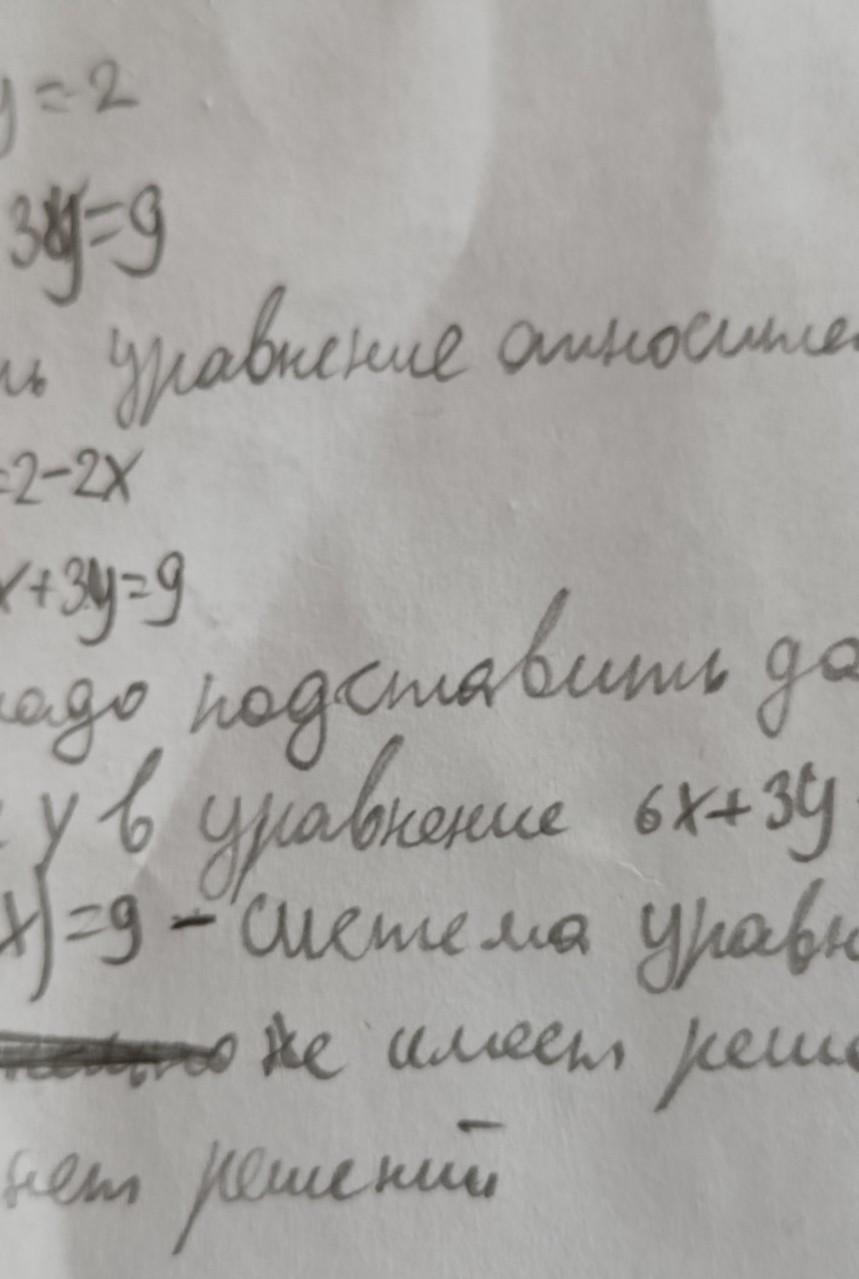 y=2
3y=9
ь уравнение относите
=2-2x
x+3y=9
надо подставить да
y в уравнение 6x+3y
x)=9 - система уравн
не имеет реше
нет решений